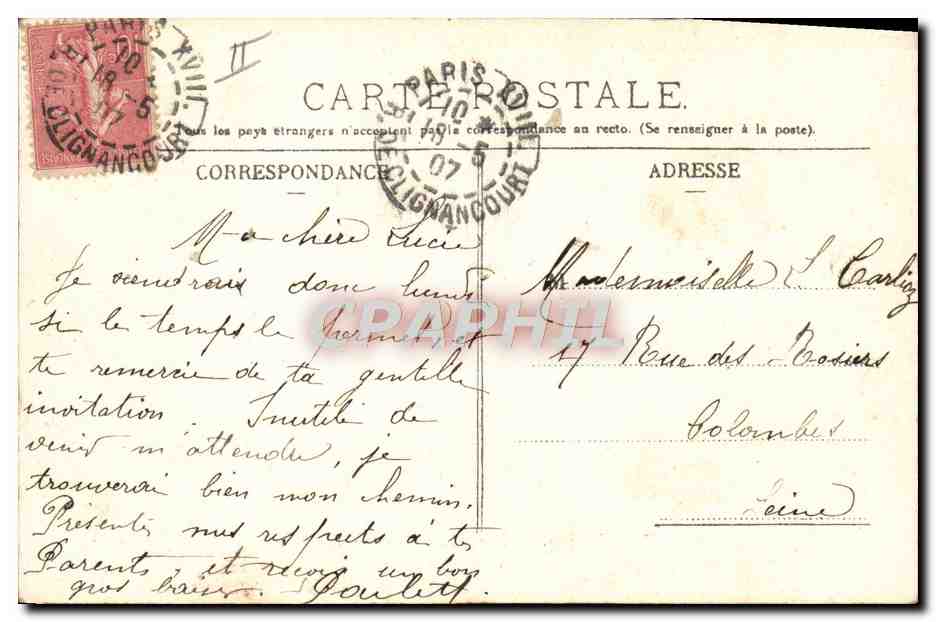 II
CARTE POSTALE.
Tous les pays étrangers n'acceptent pas la correspondance au recto. (Se renseigner à la poste).
CORRESPONDANCE
ADRESSE
PARIS XVIII
10
18 - 5
07
R. DE CLIGNANCOURT
PARIS XVIII
10 *
18 - 5
07
R. DE CLIGNANCOURT
Ma chère Lucie
Je viendrais donc lundi
si le temps le permet, et
te remercie de ta gentille
invitation. Inutile de
venir m'attendre, je
trouverai bien mon chemin.
Présentes mes respects à tes
Parents, et reçois un bon
gros baiser. Paulette.
Mademoiselle L. Carlier
17 Rue des Rosiers
Colombes
Seine
CPAPHIL